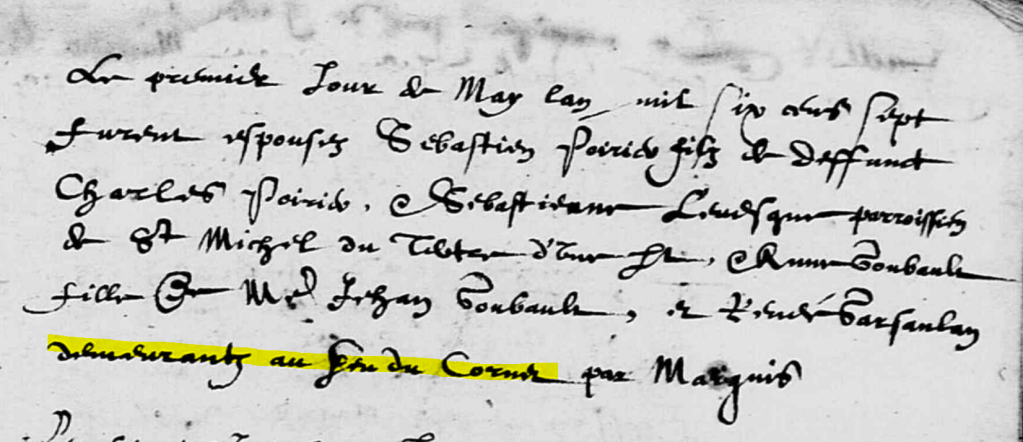 Le premier Jour de May lan mil six cens sept
furent espousez Sebastien Poirier filz de deffunct
Charles Poirier, & Sebastienne Levesque parroissien
de St Michel du Tertre d'une pt, & Anne Boubault
fille de Me Jehan Boubault, et Renée
demeurantz au lieu du Cornet par Marquis